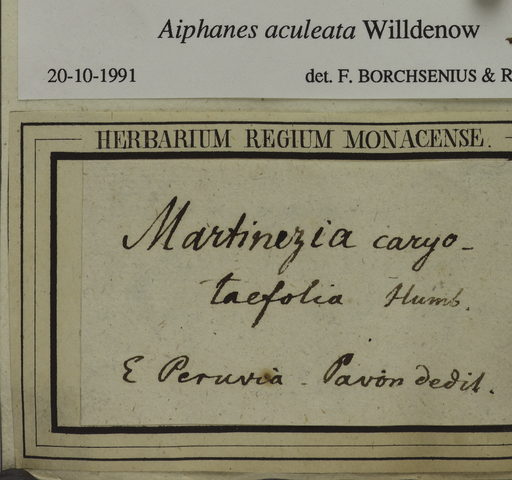 Aiphanes aculeata Willdenow
20-10-1991 det. F. BORCHSENIUS & R
HERBARIUM REGIUM MONACENSE.
Martinezia caryo-
taefolia Humb.
E Peruvia. Pavon dedit.